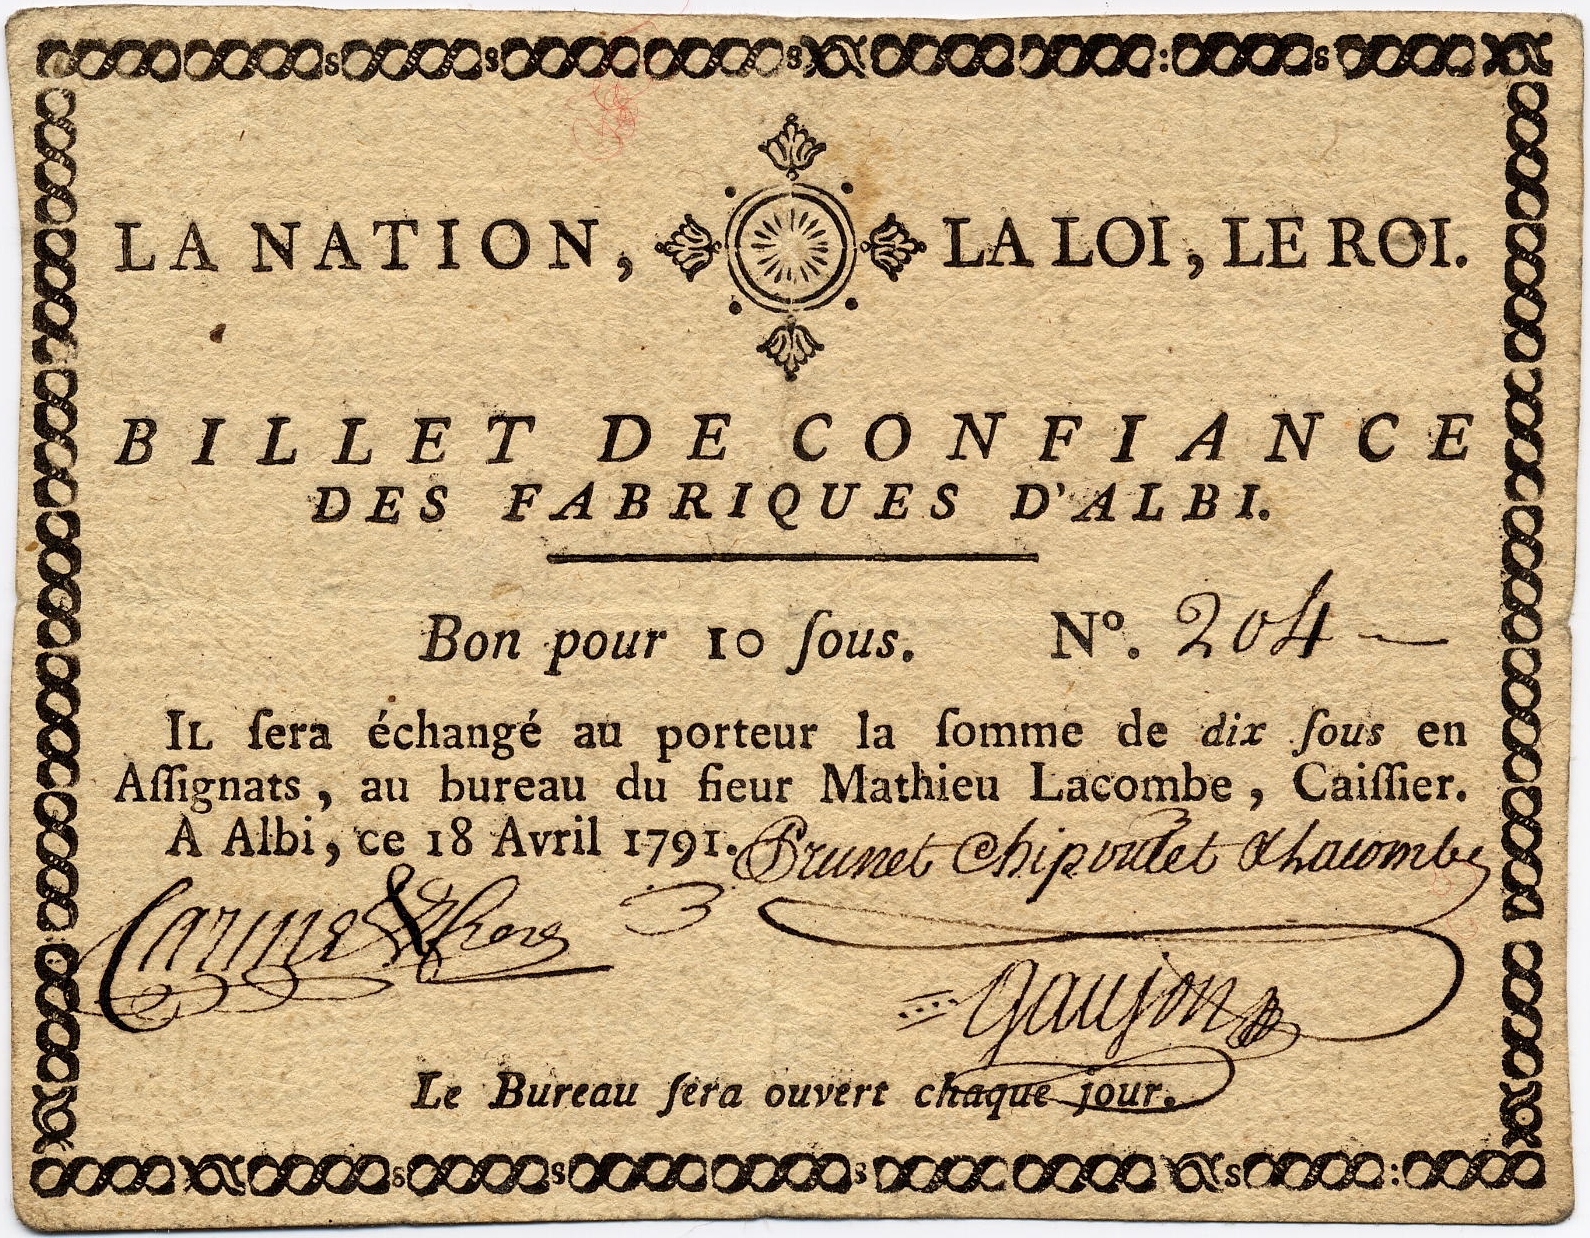 LA NATION, LA LOI, LE ROI.
BILLET DE CONFIANCE
DES FABRIQUES D'ALBI.
Bon pour 10 ſous. Nº. 204
IL ſera échangé au porteur la ſomme de dix ſous en
Aſſignats, au bureau du ſieur Mathieu Lacombe, Caiſſier.
A Albi, ce 18 Avril 1791. Brunet Chipoulet & Lacombe
Carme &
Gaujon
Le Bureau ſera ouvert chaque jour.